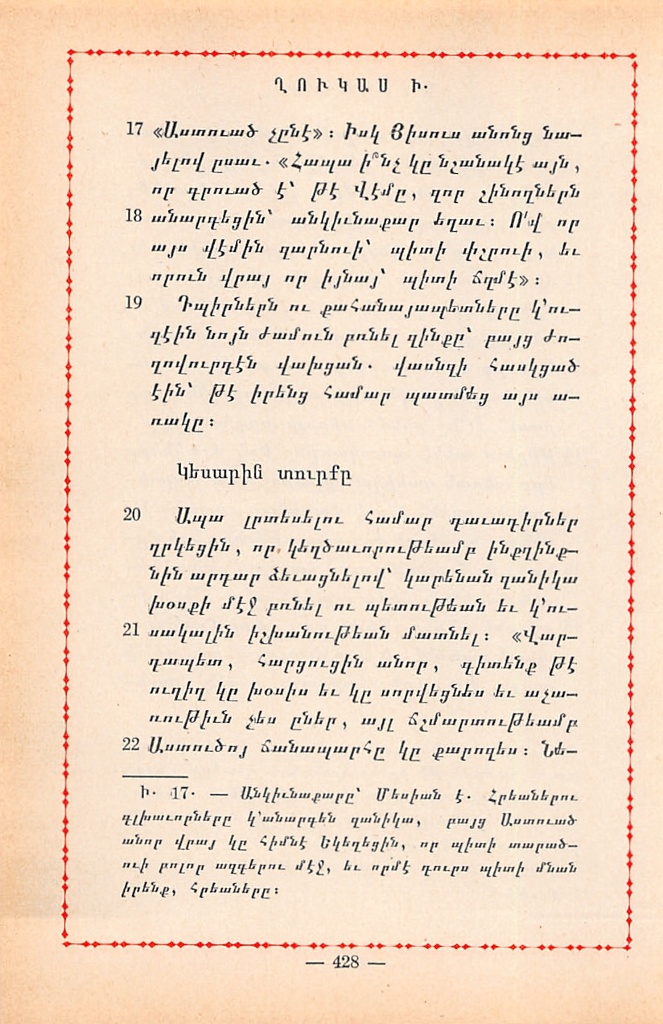 ՂՈՒԿԱՍ Ի.
17 «Աստուած չընէ»։ Իսկ Յիսուս անոնց նա—
յելով ըսաւ. «Հապա ի՞նչ կը նշանակէ այն,
որ գրուած է՝ թէ Վէմը, զոր շինողներն
18 անարգեցին՝ անկիւնաքար եղաւ։ Ո՛վ որ
այս վէմին զարնուի՝ պիտի փշրուի, եւ
որուն վրայ որ իյնայ՝ պիտի ճզմէ»։
19 Դպիրներն ու քահանայապետները կ՚ու—
զէին նոյն ժամուն բռնել զինքը՝ բայց ժո—
ղովուրդէն վախցան. վասնզի հասկցած
էին՝ թէ իրենց համար պատմեց այս ա—
ռակը։
Կեսարին տուրքը
20 Ապա լրտեսելու համար դաւադիրներ
ղրկեցին, որ կեղծաւորութեամբ ինքզինք—
նին արդար ձեւացնելով՝ կարենան զանիկա
խօսքի մէջ բռնել ու պետութեան եւ կ՚ու—
21 սակալին իշխանութեան մատնել։ «Վար—
դապետ, հարցուցին անոր, գիտենք թէ
ուղիղ կը խօսիս եւ կը սորվեցնես եւ աչա—
ռութիւն չես ըներ, այլ ճշմարտութեամբ
22 Աստուծոյ ճանապարհը կը քարոզես։ Նե—
Ի. 17. — Անկիւնաքարը՝ Մեսիան է. Հրեաներու
գլխաւորները կ՚անարգեն զանիկա, բայց Աստուած
անոր վրայ կը հիմնէ Եկեղեցին, որ պիտի տարած—
ուի բոլոր ազգերու մէջ, եւ որմէ դուրս պիտի մնան
իրենք, հրեաները։
— 428 —